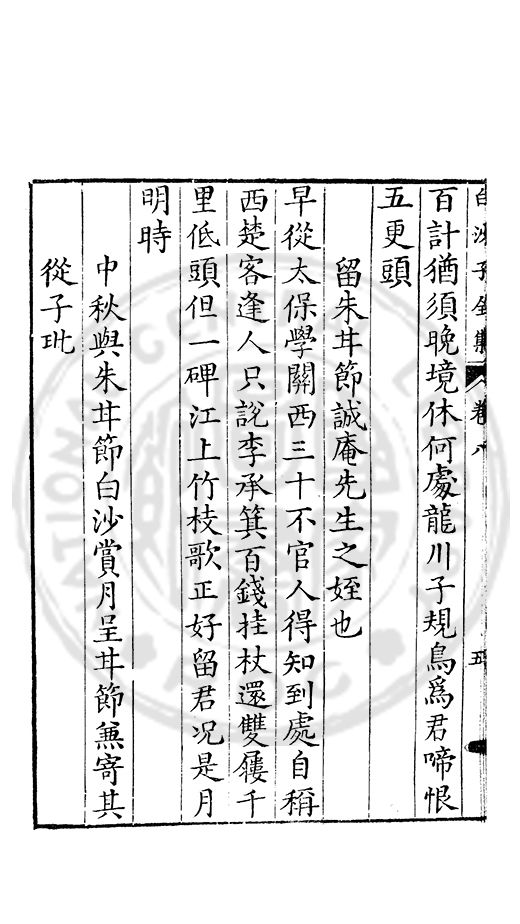 白沙子全集 卷八 五
百計猶須晚境休何處龍川子規鳥爲君啼恨
五更頭
留朱井節誠庵先生之姪也
早從太保學關西三十不官人得知到處自稱
西楚客逢人只說李承箕百錢挂杖還雙屨千
里低頭但一碑江上竹枝歌正好留君况是月
明時
中秋與朱井節白沙賞月呈井節兼寄其
從子玭